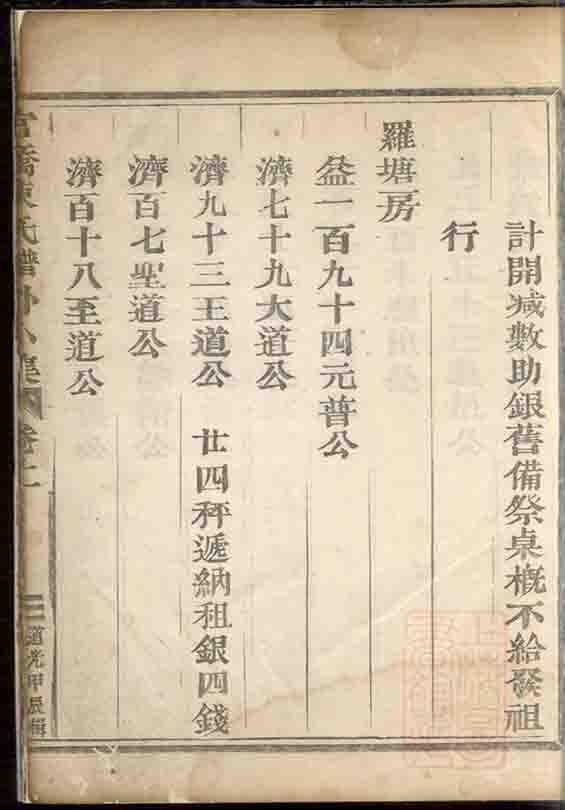 計開减數助銀舊備祭桌概不給發祖
行
羅塘房
益一百九十四元普公
濟七十九大道公
濟九十三王道公 廿四秤遞納祖銀四錢
濟百七聖道公
濟百十八至道公
氏譜
道光甲辰輯